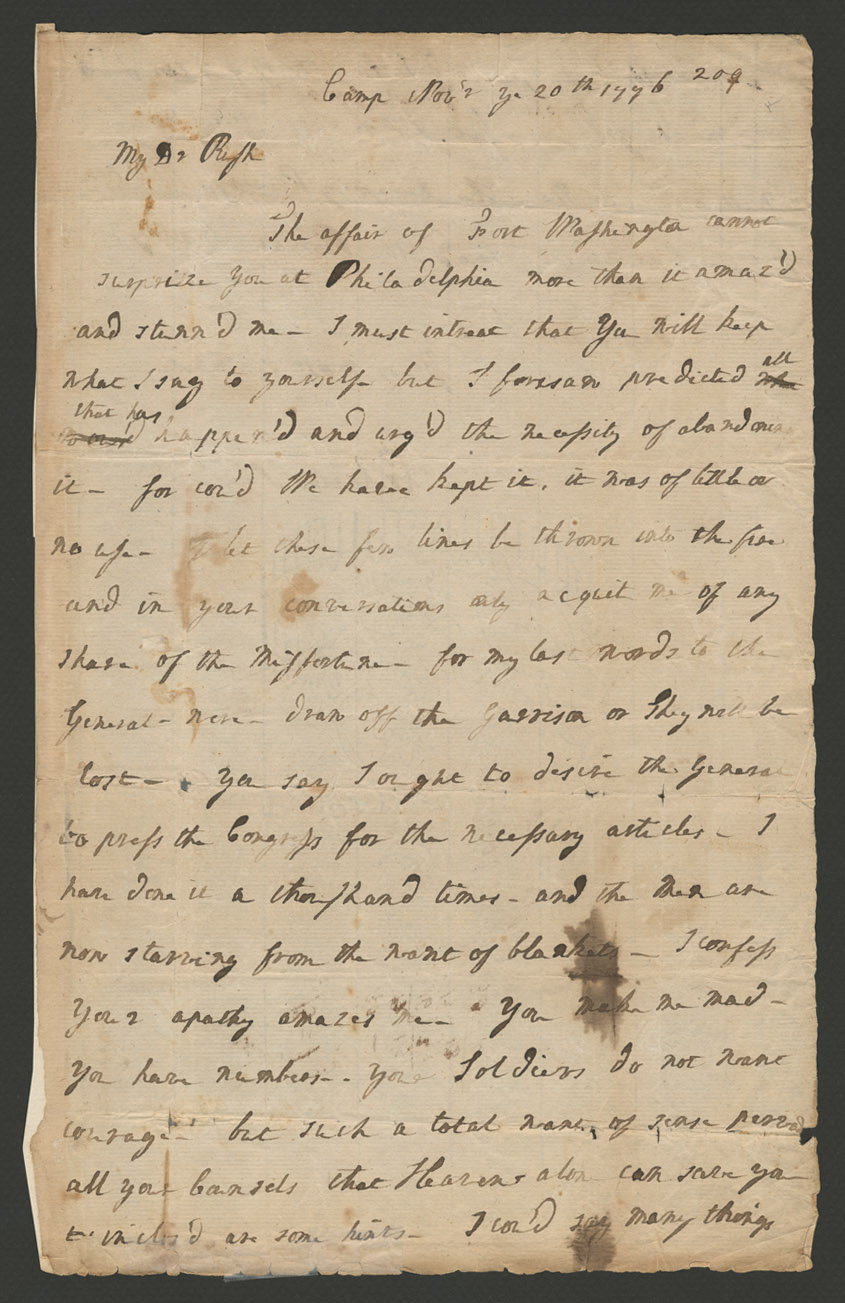 Camp Nov'r ye 20th 1776 209
My Dr Rush
The affair of Fort Washington cannot
surprize you at Philadelphia more than it amaz'd
and stunn'd me – I must intreat that You will keep
what I say to yourself – but I foresaw predicted all
that has happen'd and urg'd the necessity of abandoning
it – for cou'd We have kept it, it was of little or
no use – let these few lines be thrown into the fire
and in your conversations only acquit me of any
share of the Misfortune – for my last words to the
General – were – draw off the Garrison or They will be
lost – You say I ought to desire the General
to press the Congress for the necessary articles – I
have done it a thoushand times – and the Men are
now starving from the want of blankets – I confess
Your apathy amazes me – You make me mad –
You have numbers – your Soldiers do not want
courage – but such a total want of sense pervades
all your Counsels that Heaven alone can save you
inclos'd are some hints – I cou'd say many things